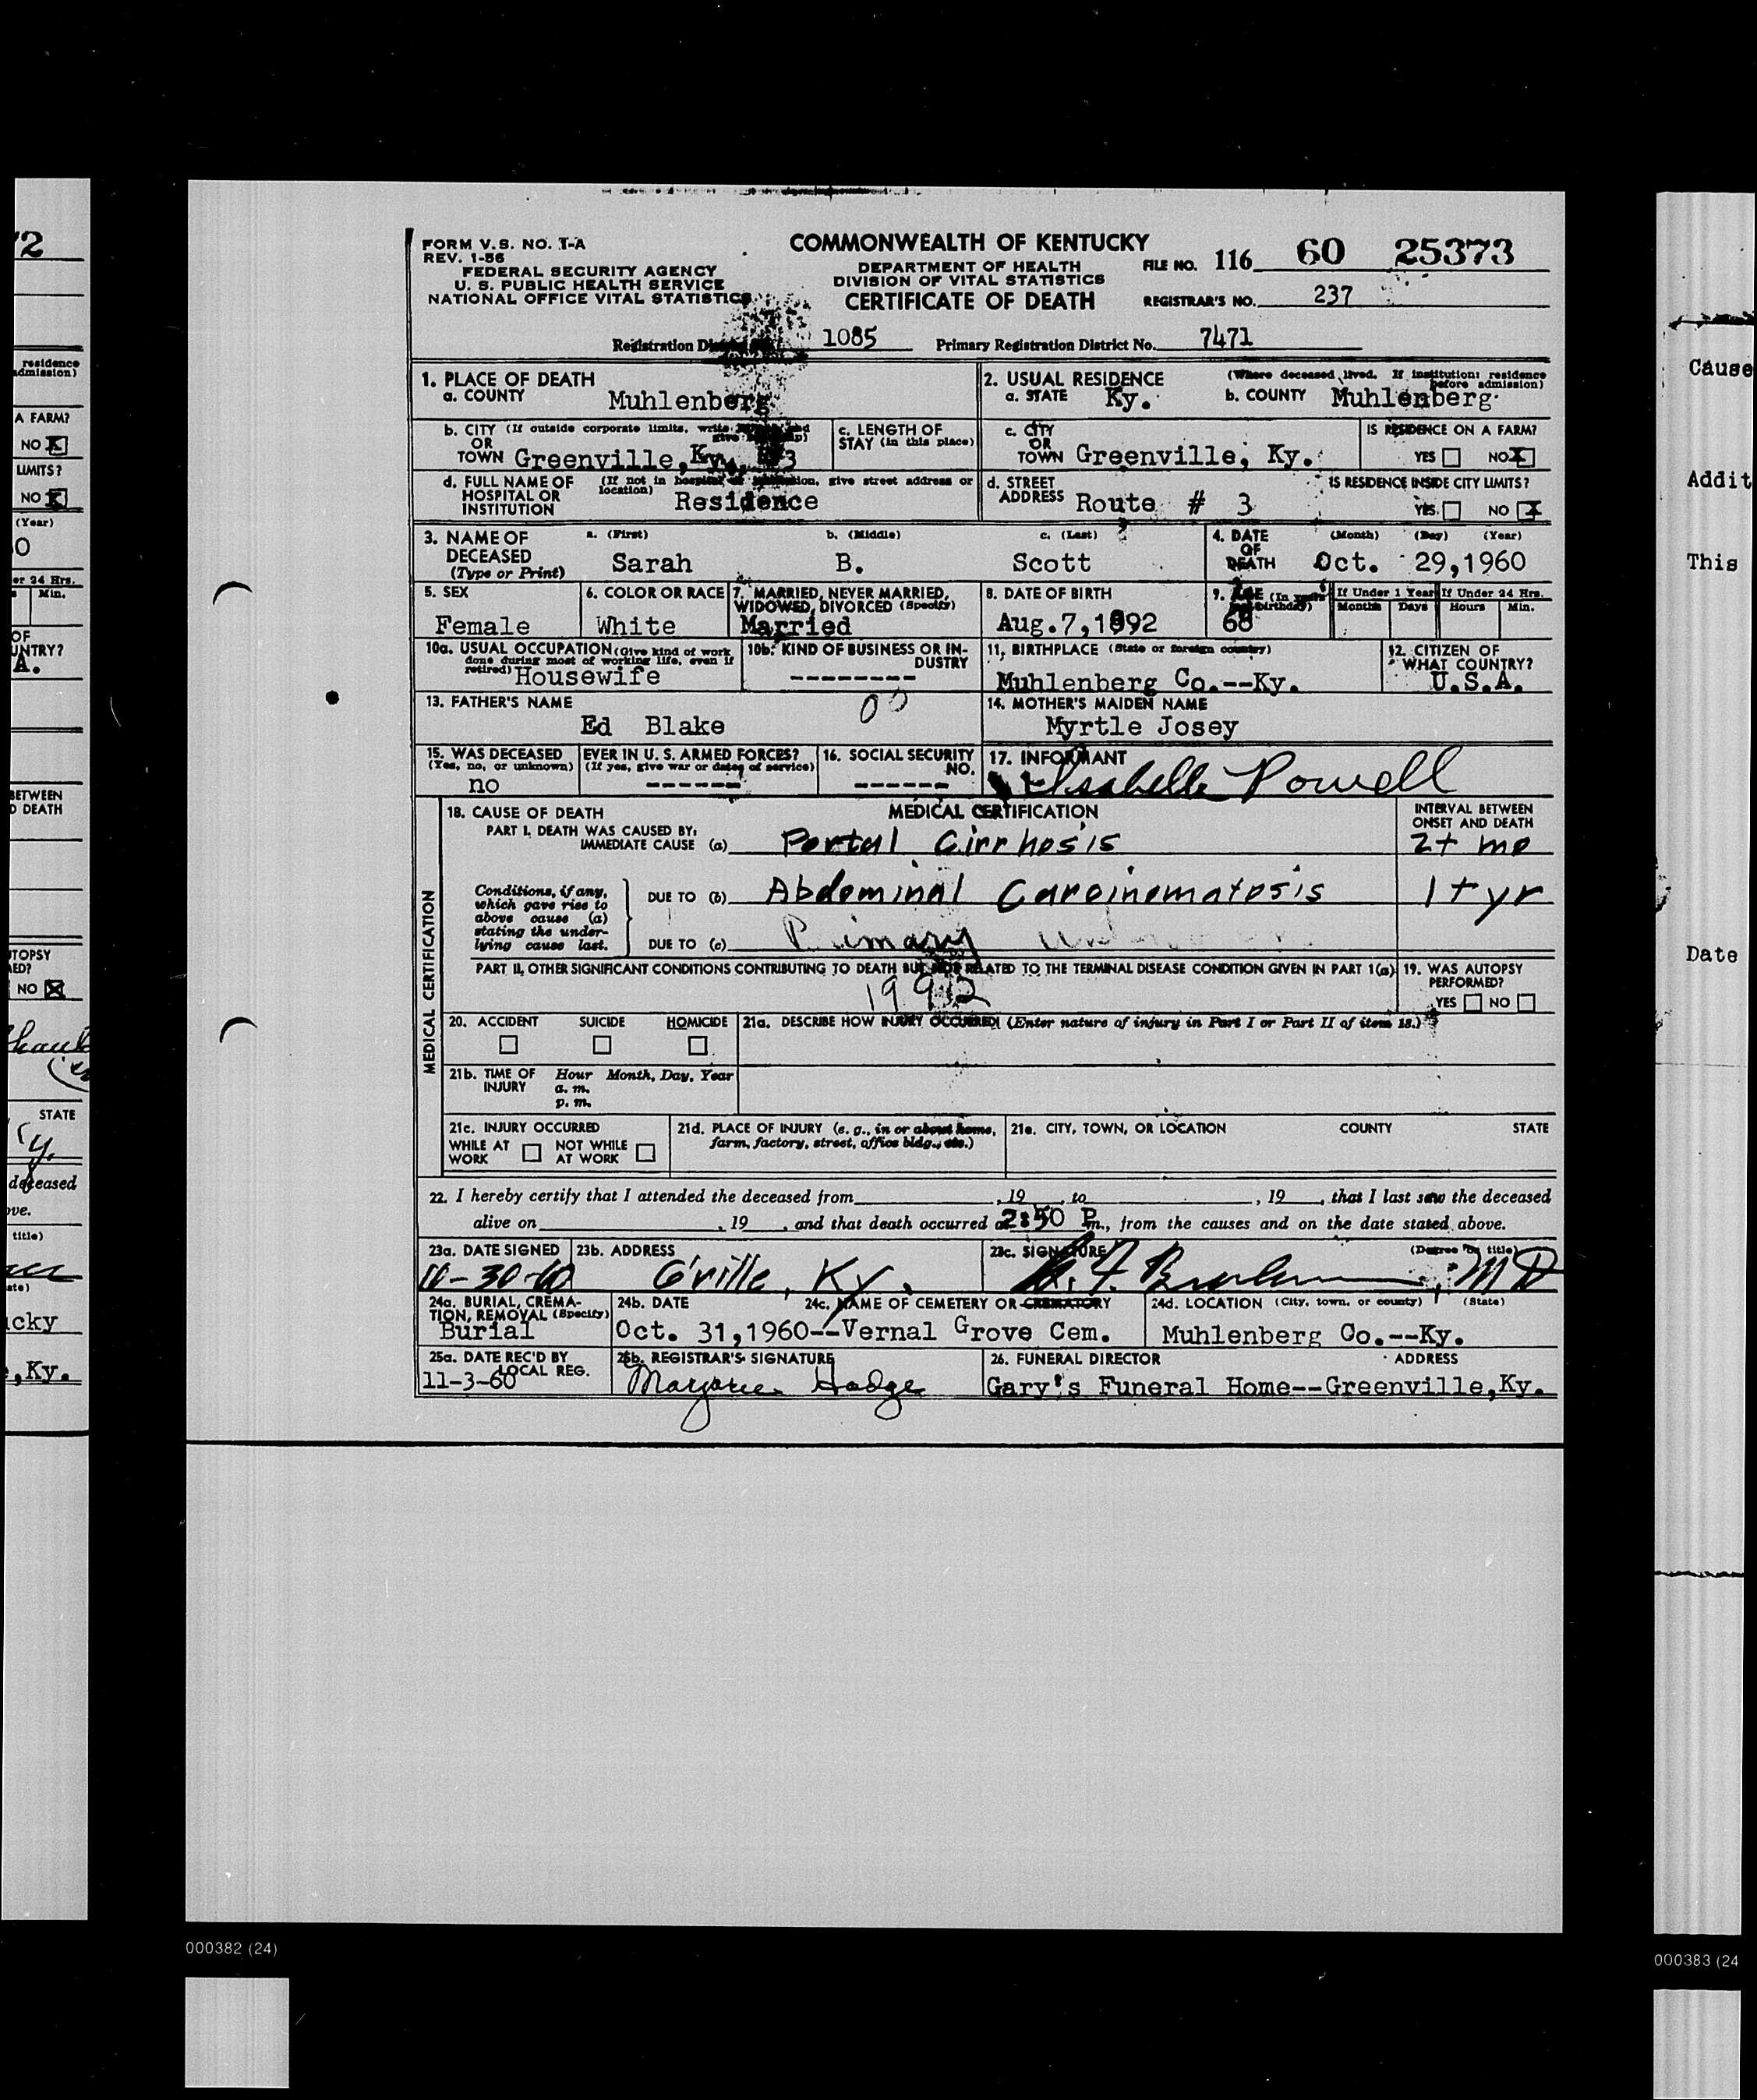 FORM V.S. NO. 1-A
REV. 1-56
FEDERAL SECURITY AGENCY
U. S. PUBLIC HEALTH SERVICE
NATIONAL OFFICE VITAL STATISTICS
COMMONWEALTH OF KENTUCKY
DEPARTMENT OF HEALTH
DIVISION OF VITAL STATISTICS
CERTIFICATE OF DEATH
FILE NO. 116 60 25373
REGISTRAR'S NO. 237
Registration 1085 Primary Registration District No. 7471
1. PLACE OF DEATH
a. COUNTY Muhlenberg
2. USUAL RESIDENCE (Where deceased lived. If institution: residence before admission)
a. STATE Ky. b. COUNTY Muhlenberg
b. CITY (If outside corporate limits, write
OR
TOWN Greenville, Ky., 3
c. LENGTH OF
STAY (in this place)
c. CITY
OR
TOWN Greenville, Ky.
IS RESIDENCE ON A FARM?
YES NO X
d. FULL NAME OF (If not in hospital or institution, give street address or location)
HOSPITAL OR
INSTITUTION Residence
d. STREET
ADDRESS Route # 3
IS RESIDENCE INSIDE CITY LIMITS?
YES NO X
3. NAME OF
DECEASED
(Type or Print)
a. (First) b. (Middle) c. (Last)
Sarah B. Scott
4. DATE OF DEATH (Month) (Day) (Year)
Oct. 29,1960
5. SEX
Female
6. COLOR OR RACE
White
7. MARRIED, NEVER MARRIED,
WIDOWED, DIVORCED (Specify)
Married
8. DATE OF BIRTH
Aug.7,1892
9. AGE (In years last birthday)
68
If Under 1 Year If Under 24 Hrs.
Months Days Hours Min.
10a. USUAL OCCUPATION (Give kind of work
done during most of working life, even if
retired) Housewife
10b. KIND OF BUSINESS OR IN-
DUSTRY
--------
11. BIRTHPLACE (State or foreign country)
Muhlenberg Co.--Ky.
12. CITIZEN OF
WHAT COUNTRY?
U.S.A.
13. FATHER'S NAME
Ed Blake
14. MOTHER'S MAIDEN NAME
Myrtle Josey
15. WAS DECEASED EVER IN U. S. ARMED FORCES?
(Yes, no, or unknown) (If yes, give war or dates of service)
no ------
16. SOCIAL SECURITY
NO.
------
17. INFORMANT
Isabelle Powell
MEDICAL CERTIFICATION
18. CAUSE OF DEATH MEDICAL CERTIFICATION INTERVAL BETWEEN
ONSET AND DEATH
PART I. DEATH WAS CAUSED BY:
IMMEDIATE CAUSE (a) Portal Cirrhosis 2+ mo
Conditions, if any,
which gave rise to
above cause (a)
stating the under-
lying cause last.
DUE TO (b) Abdominal Carcinomatosis 1+ yr
DUE TO (c) Primary
PART II, OTHER SIGNIFICANT CONDITIONS CONTRIBUTING TO DEATH BUT NOT RELATED TO THE TERMINAL DISEASE CONDITION GIVEN IN PART 1(a)
1992
19. WAS AUTOPSY
PERFORMED?
YES NO
20. ACCIDENT SUICIDE HOMICIDE
21a. DESCRIBE HOW INJURY OCCURRED! (Enter nature of injury in Part I or Part II of item 18.)
21b. TIME OF Hour Month, Day, Year
INJURY a. m.
p. m.
21c. INJURY OCCURRED
WHILE AT NOT WHILE
WORK AT WORK
21d. PLACE OF INJURY (e. g., in or about home,
farm, factory, street, office bldg., etc.)
21e. CITY, TOWN, OR LOCATION COUNTY STATE
22. I hereby certify that I attended the deceased from , 19 , to , 19 , that I last saw the deceased
alive on , 19 , and that death occurred at 2:50 P m., from the causes and on the date stated above.
23a. DATE SIGNED
10-30-60
23b. ADDRESS
G'ville, Ky.
23c. SIGNATURE (Degree or title)
MD
24a. BURIAL, CREMA-
TION, REMOVAL (Specify)
Burial
24b. DATE
Oct. 31,1960--
24c. NAME OF CEMETERY OR CREMATORY
Vernal Grove Cem.
24d. LOCATION (City, town, or county) (State)
Muhlenberg Co.--Ky.
25a. DATE REC'D BY
LOCAL REG.
11-3-60
25b. REGISTRAR'S SIGNATURE
Marjorie Hodge
26. FUNERAL DIRECTOR ADDRESS
Gary's Funeral Home--Greenville,Ky.
000382 (24)
000383 (24
Cause
Addit
This
Date